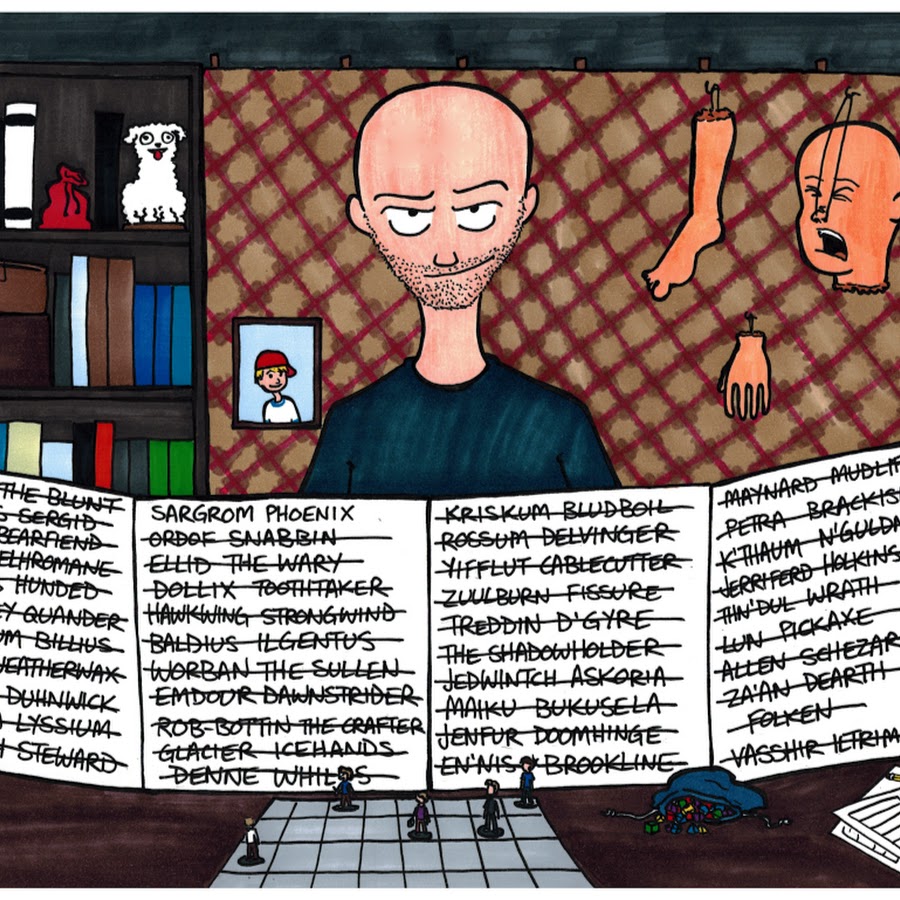 THE BLUNT
SERGID
BEARFIEND
ELHROMANE
HUNDED
EY QUANDER
UM BILLIUS
WEATHERWAX
DUHNWICK
LYSSIUM
STEWARD
SARGROM PHOENIX
ORDOF SNABBIN
ELLID THE WARY
DOLLIX TOOTHTAKER
HAWKWING STRONGWIND
BALDIUS ILGENTUS
WORBAN THE SULLEN
EMDOUR DAWNSTRIDER
ROB-BOTTIN THE CRAFTER
GLACIER ICEHANDS
DENNE
KRISKUM BLUDBOIL
ROSSUM DELVINGER
YIFFLUT CABLECUTTER
ZUULBURN FISSURE
TREDDIN D'GYRE
THE SHADOWHOLDER
JEDWINTCH ASKORIA
MAIKU BUKUSELA
JENFUR DOOMHINGE
EN'NIS BROOKLINE
MAYNARD MUDLIF
PETRA BRACKIS
K'THAUM N'GULDA
JERRIFERD HOLKINS
THN'DUL WRATH
LUN PICKAXE
ALLEN SCHEZAR
ZA'AN DEARTH
FOLKEN
VASSHIR IETRIM